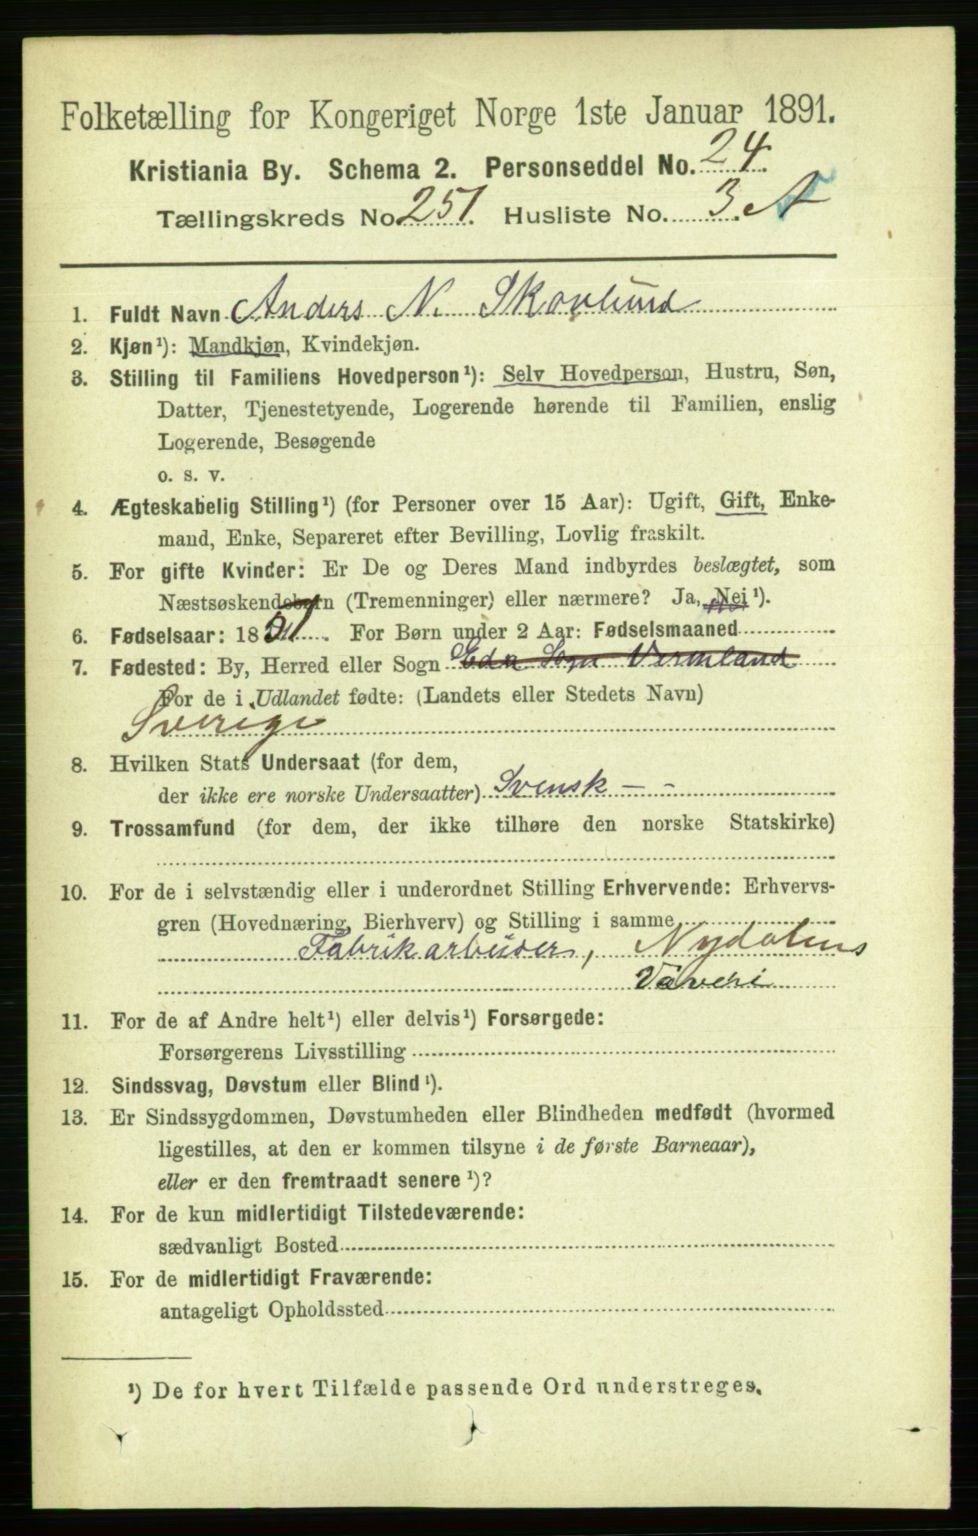 Folketælling for Kongeriget Norge 1ste Januar 1891.
Kristiania By. Schema 2. Personseddel No. 24.
Tællingskreds No. 251. Husliste No. 3. A
1. Fuldt Navn Anders N. Skovlund
2. Kjøn¹): Mandkjøn, Kvindekjøn.
3. Stilling til Familiens Hovedperson¹): Selv Hovedperson, Hustru, Søn,
Datter, Tjenestetyende, Logerende hørende til Familien, enslig
Logerende, Besøgende
o. s. v.
4. Ægteskabelig Stilling¹) (for Personer over 15 Aar): Ugift, Gift, Enke-
mand, Enke, Separeret efter Bevilling, Lovlig fraskilt.
5. For gifte Kvinder: Er De og Deres Mand indbyrdes beslægtet, som
Næstsøskendebørn (Tremenninger) eller nærmere? Ja, Nei¹).
6. Fødselsaar: 1851. For Børn under 2 Aar: Fødselsmaaned
7. Fødested: By, Herred eller Sogn Eda Sogn Vermland
For de i Udlandet fødte: (Landets eller Stedets Navn)
Sverige
8. Hvilken Stats Undersaat (for dem,
der ikke ere norske Undersaatter) Svensk - -
9. Trossamfund (for dem, der ikke tilhøre den norske Statskirke)
10. For de i selvstændig eller i underordnet Stilling Erhvervende: Erhvervs-
gren (Hovednæring, Bierhverv) og Stilling i samme
Fabrikarbeider, Nydalens
Væveri
11. For de af Andre helt¹) eller delvis¹) Forsørgede:
Forsørgerens Livsstilling
12. Sindssvag, Døvstum eller Blind¹).
13. Er Sindssygdommen, Døvstumheden eller Blindheden medfødt (hvormed
ligestilles, at den er kommen tilsyne i de første Barneaar),
eller er den fremtraadt senere¹)?
14. For de kun midlertidigt Tilstedeværende:
sædvanligt Bosted
15. For de midlertidigt Fraværende:
antageligt Opholdssted
¹) De for hvert Tilfælde passende Ord understreges.